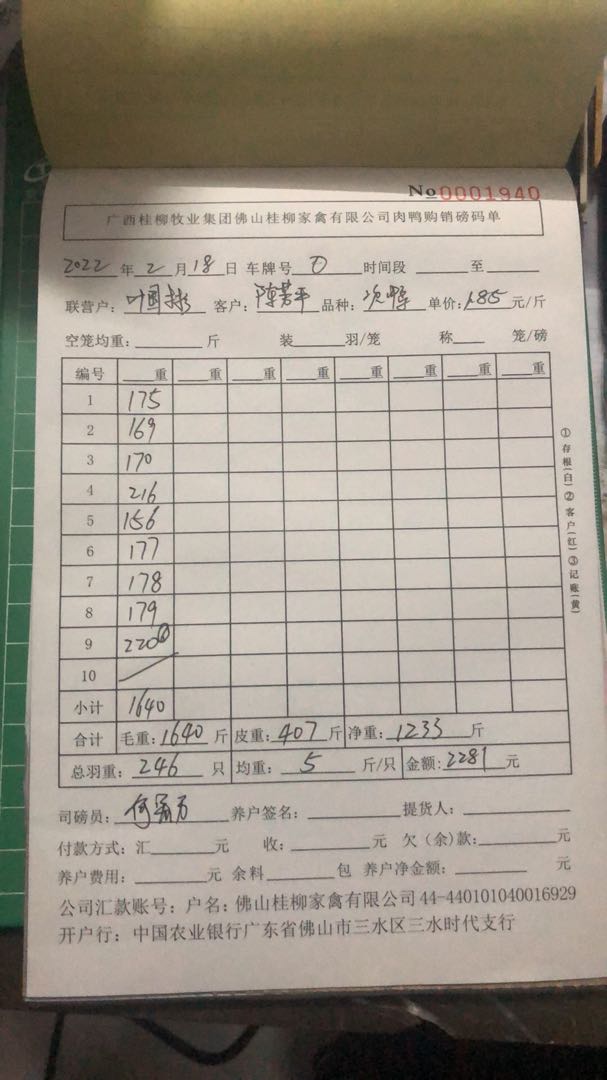 No 0001940
广西桂柳牧业集团佛山桂柳家禽有限公司肉鸭购销磅码单
2022 年 2 月 18 日 车牌号 0 时间段 至
联营户: 叶国彬 客户: 陈芳平 品种: 次鸭 单价: 1.85 元/斤
空笼均重: 斤 装 羽/笼 称 笼/磅
编号 重 重 重 重 重 重 重 重
1 175
2 169
3 170
4 216
5 156
6 177
7 178
8 179
9 220
10
小计 1640
合计 毛重: 1640 斤 皮重: 407 斤 净重: 1233 斤
总羽重: 246 只 均重: 5 斤/只 金额: 2281 元
司磅员: 养户签名: 提货人:
付款方式: 汇 元 收: 元 欠(余)款: 元
养户费用: 元 余料 包 养户净金额: 元
公司汇款账号: 户名: 佛山桂柳家禽有限公司 44-440101040016929
开户行: 中国农业银行广东省佛山市三水区三水时代支行
①存根(白)②客户(红)③记账(黄)